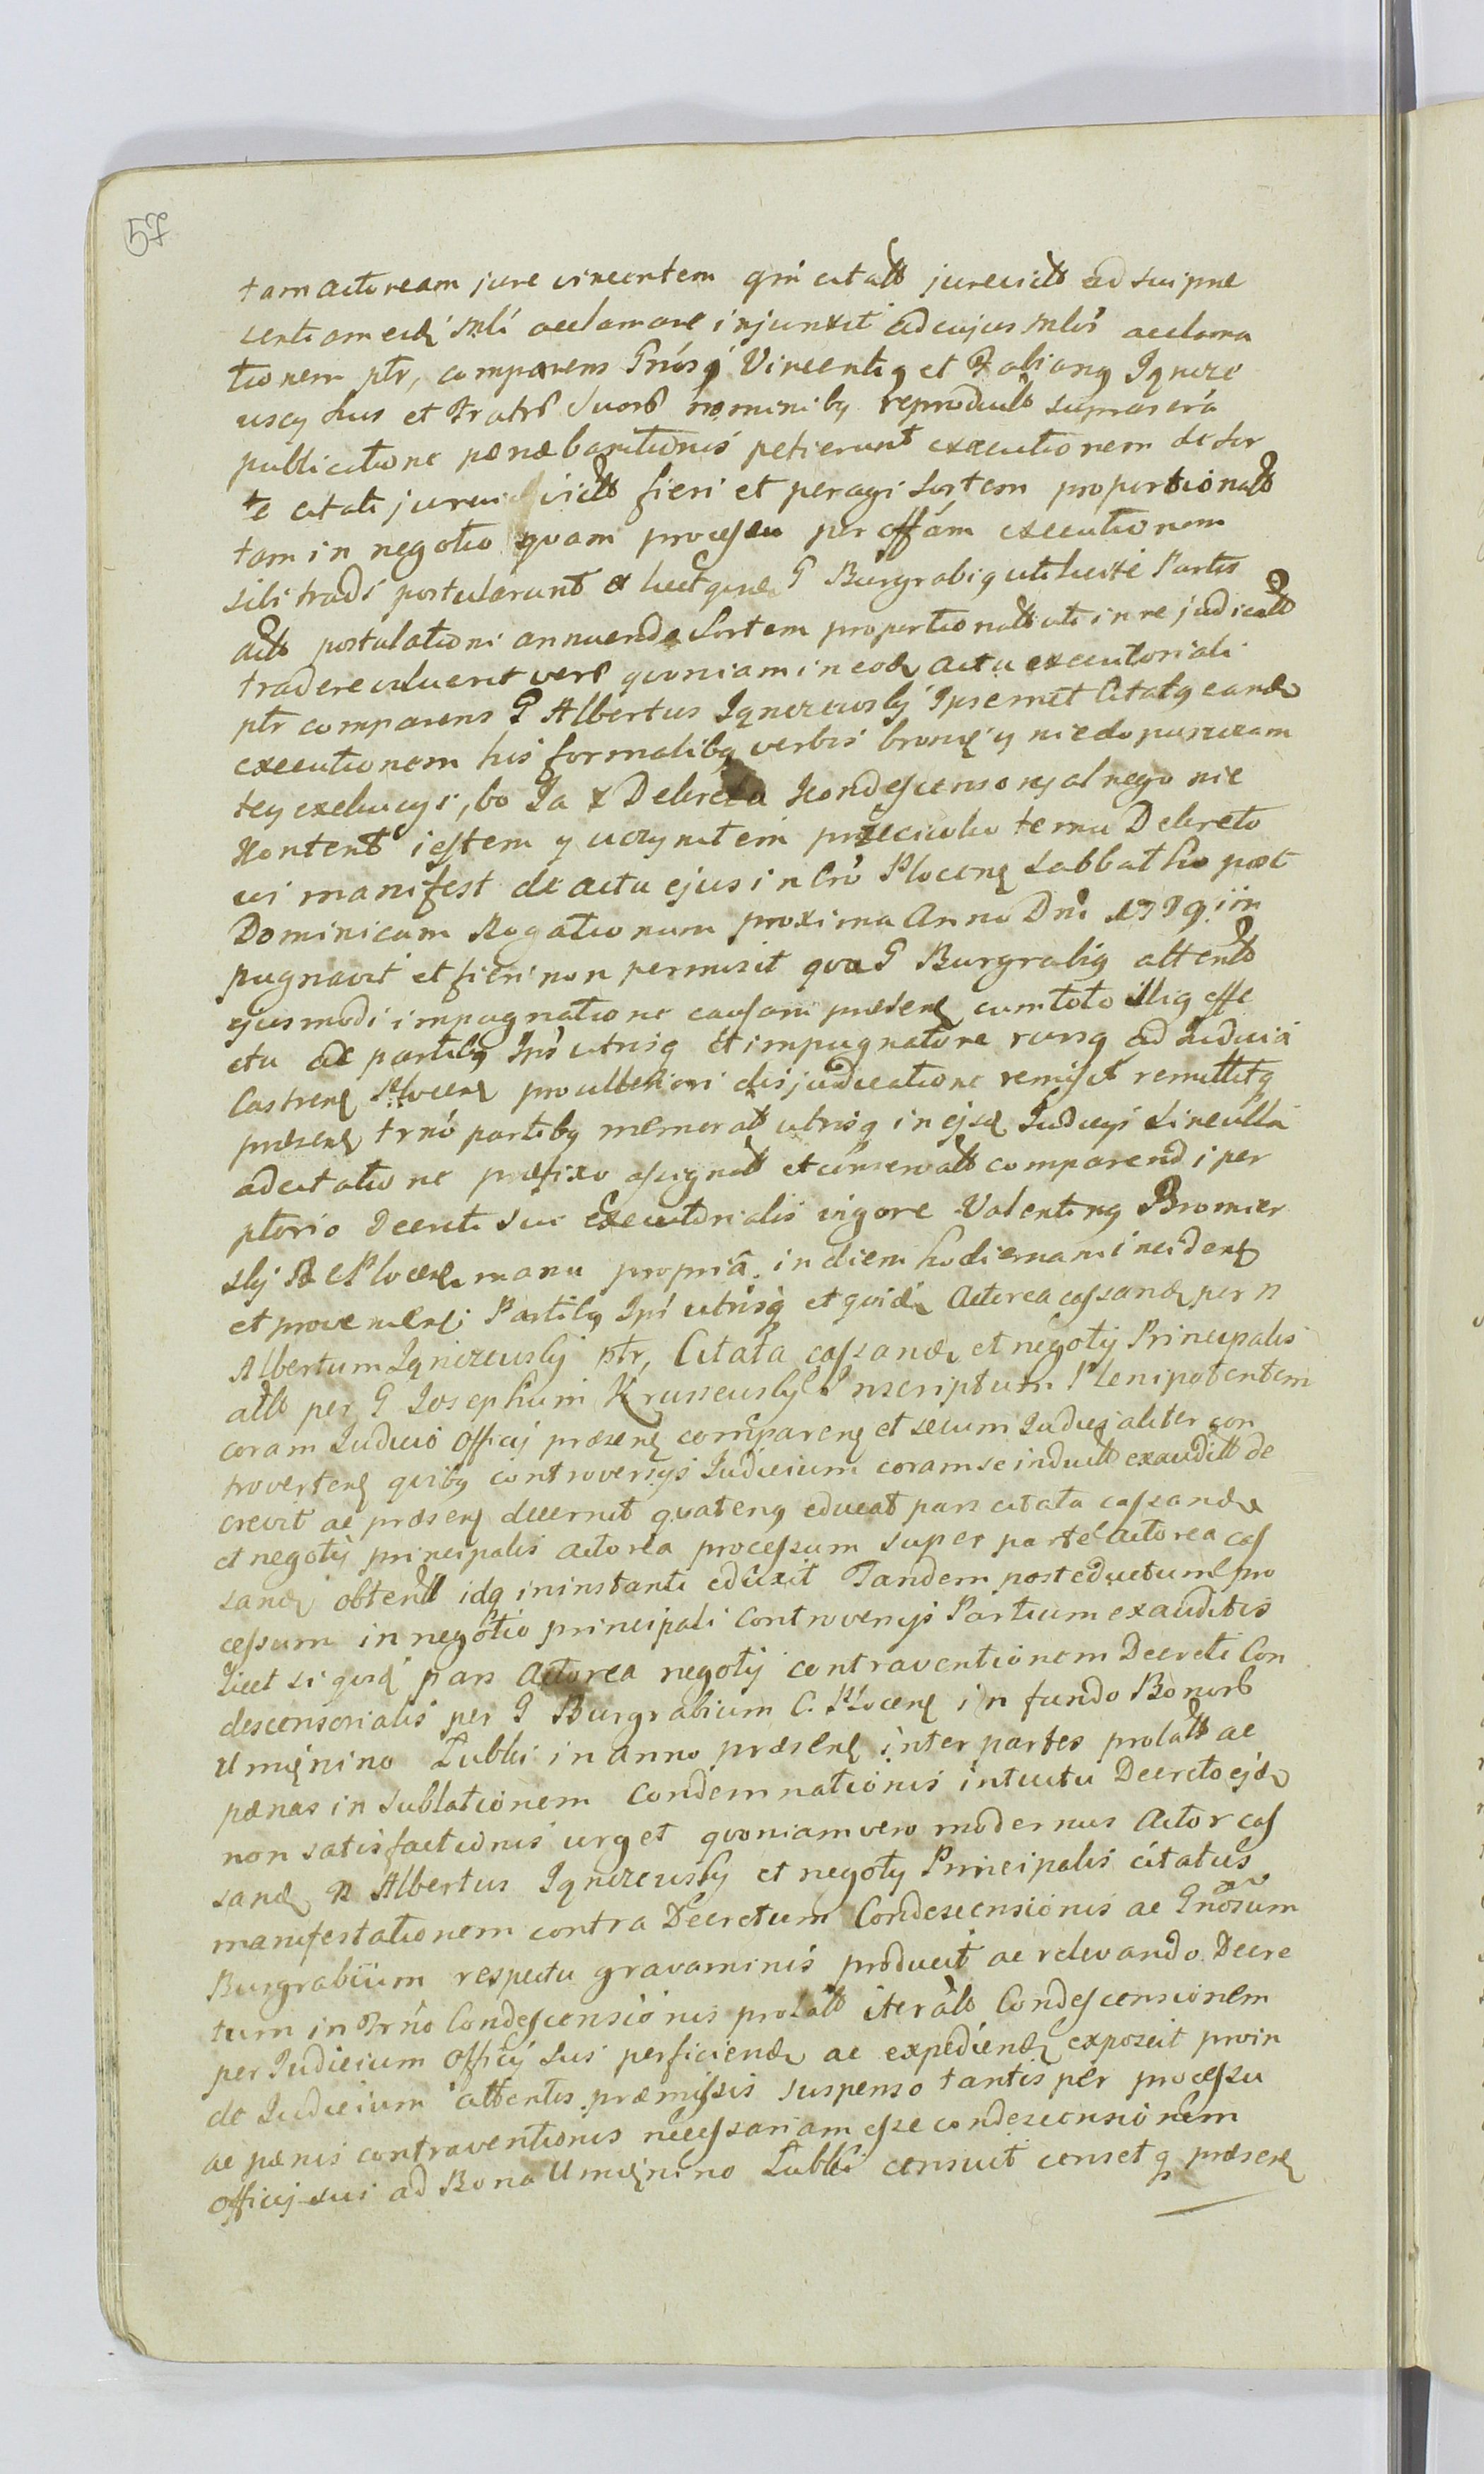 57
tam actoream jure vincentem qui citatt jurevictt ad sui pne
centiam eid Mli acclamare injunxit ad cujus Mlis acclama
tionem ptr, comparens Gnosq Vincentiq et Fabianq Ignicze
uscy suis et Fratrb Suorb nominibq reproductt supraserã
publicatione pænæ banitionis petierunt executionem de sor
te citati jurevictt fieri et peragi sortem proportionatt
tam in negotio quam processu per offãm executionem
sibi tradi postularunt & licet G Burgrabiq uti justé Partis
actt postulationi annuendo Sortem proportionatt uti in re judicatt
tradere voluerit vero quoniam in eod actu executoriali
ptr comparens G Albertus Ignicewsky Ipsemet Citatq eand
executionem his formalibq verbis bronię y niedopuszcam
tey exekucyi, bo Ja z Dekretu Kondescensoryalnego nie
Kontent iestem y uczynitem przeciwko temu Dekreto
wi manifest de actu ejus in Crõ Plocenę Sabbatho post
Dominicam Rogationum proxima Anno Dni 1779 im
pugnavit et fieri non permisit qua G Burgrabiq attentt
ejusmodi impugnatione causam præsenę cum toto illiq effe
ctu ac partibq Ips utrisq et impugnatore rursq ad Judicia
Castrenę Plocenę pro ulteriori disjudicatione remisit remittitq
præsenę trnó partibq memoratt utrisq in ejsd Judicys sine ulla
adcitatione præfixo assignatt et conservatt comparendi per
ptorio Decreti sui Executorialis vigore Valentinq Bromier
sky B C Plocenę manu propriâ in diem hodiernam incidenę
et provenienę Partibq Ips utrisq et quid Actorea cassand per n
Albertum Ignicewsky ptr, Citata cassand et negoty Principalis
actt per G Josephum Krussewsky Inscriptum Plenipotentem
coram Judicio Officy præsenę comparenę et secum Judicialiter con
trovertenę quibq controversys Judicium coram se inductt exauditt de
crevit ac præsenę decernit quatenq educat pars citata cassand
et negoty principalis actorea processum super parte actorea cas
sand obtentt idq in instanti eduxit Tandem post eductum pro
cessum in negotio principali Controversys Partium exauditis
licet siquid pars Actorea negoty contraventionem Decreti Con
descensorialis per G Burgrabium C. Plocenę in fundo Bonorb
Umięnino Lubki in anno præsenę inter partes prolatt ac
pænas in sublationem Condemnationis intuitu Decreto ejd
non satisfactionis urget quoniam vero modernus Actor cas
sand n Albertus Ignicewsky et negoty Principalis citatus
manifestationem contra Decretum Condescensionis ac Gnosum
Burgrabium respectu gravaminis producit ac relevando Decre
tum in Frnó Condescensionis prolatt iteratt Condescensionem
per Judicium Officy sui perficiend ac expediend exposcit proin
de Judicium attentis præmissis suspenso tantisper processu
ac pænis contraventionis necessariam esse condescensionem
Officy sui ad Bona Umięnino Lubki censuit censetq præsenę